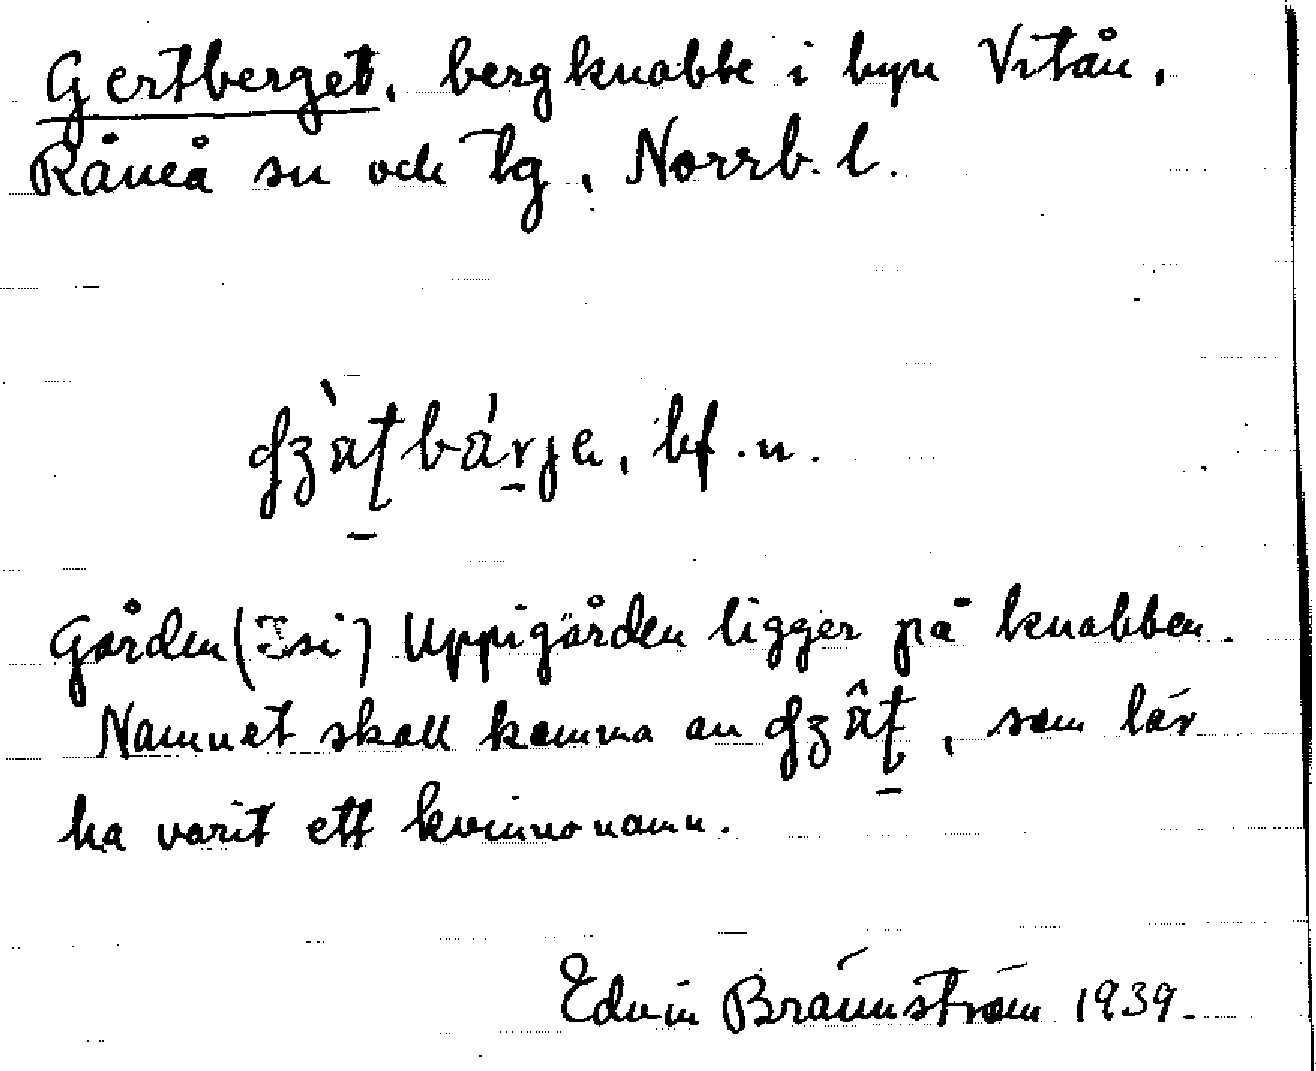 Gertberget, bergknabbe i byn Vitån,
Råneå sn och tg, Norrb. l.
bf. n.
Gården (Isi) Uppigården ligger på knabben.
Namnet skall komma an , som lär
ha varit ett kvinnonamn.
Edvin Brännström 1939.